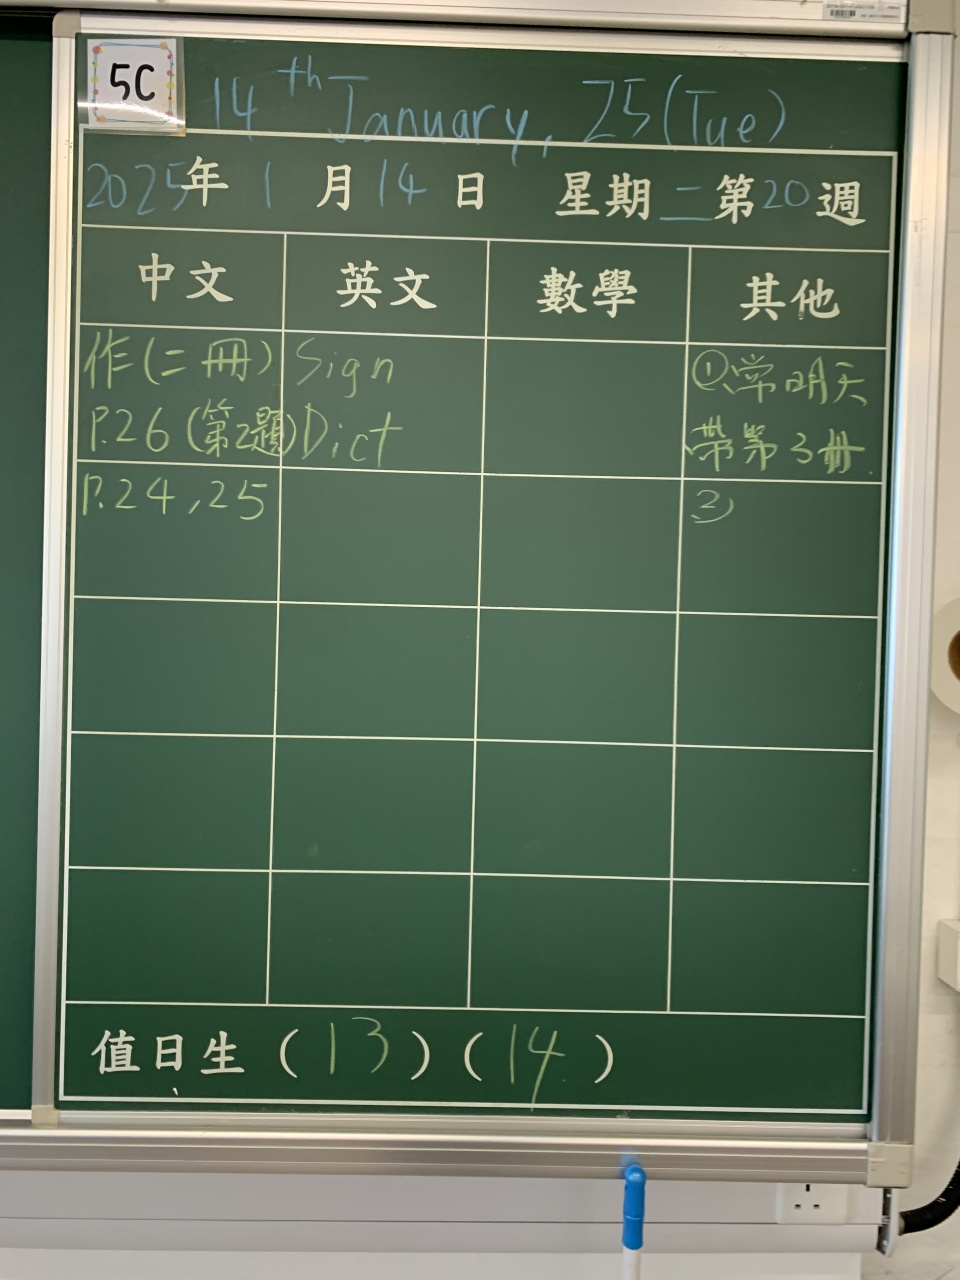 5C
14th January, 25 (Tue)
2025年1月14日 星期二第20週
中文 英文 數學 其他
作(二冊) Sign ①常明天
P.26 (第2題) Dict 帶第3冊
P.24, 25 ②
值日生 (13) (14)